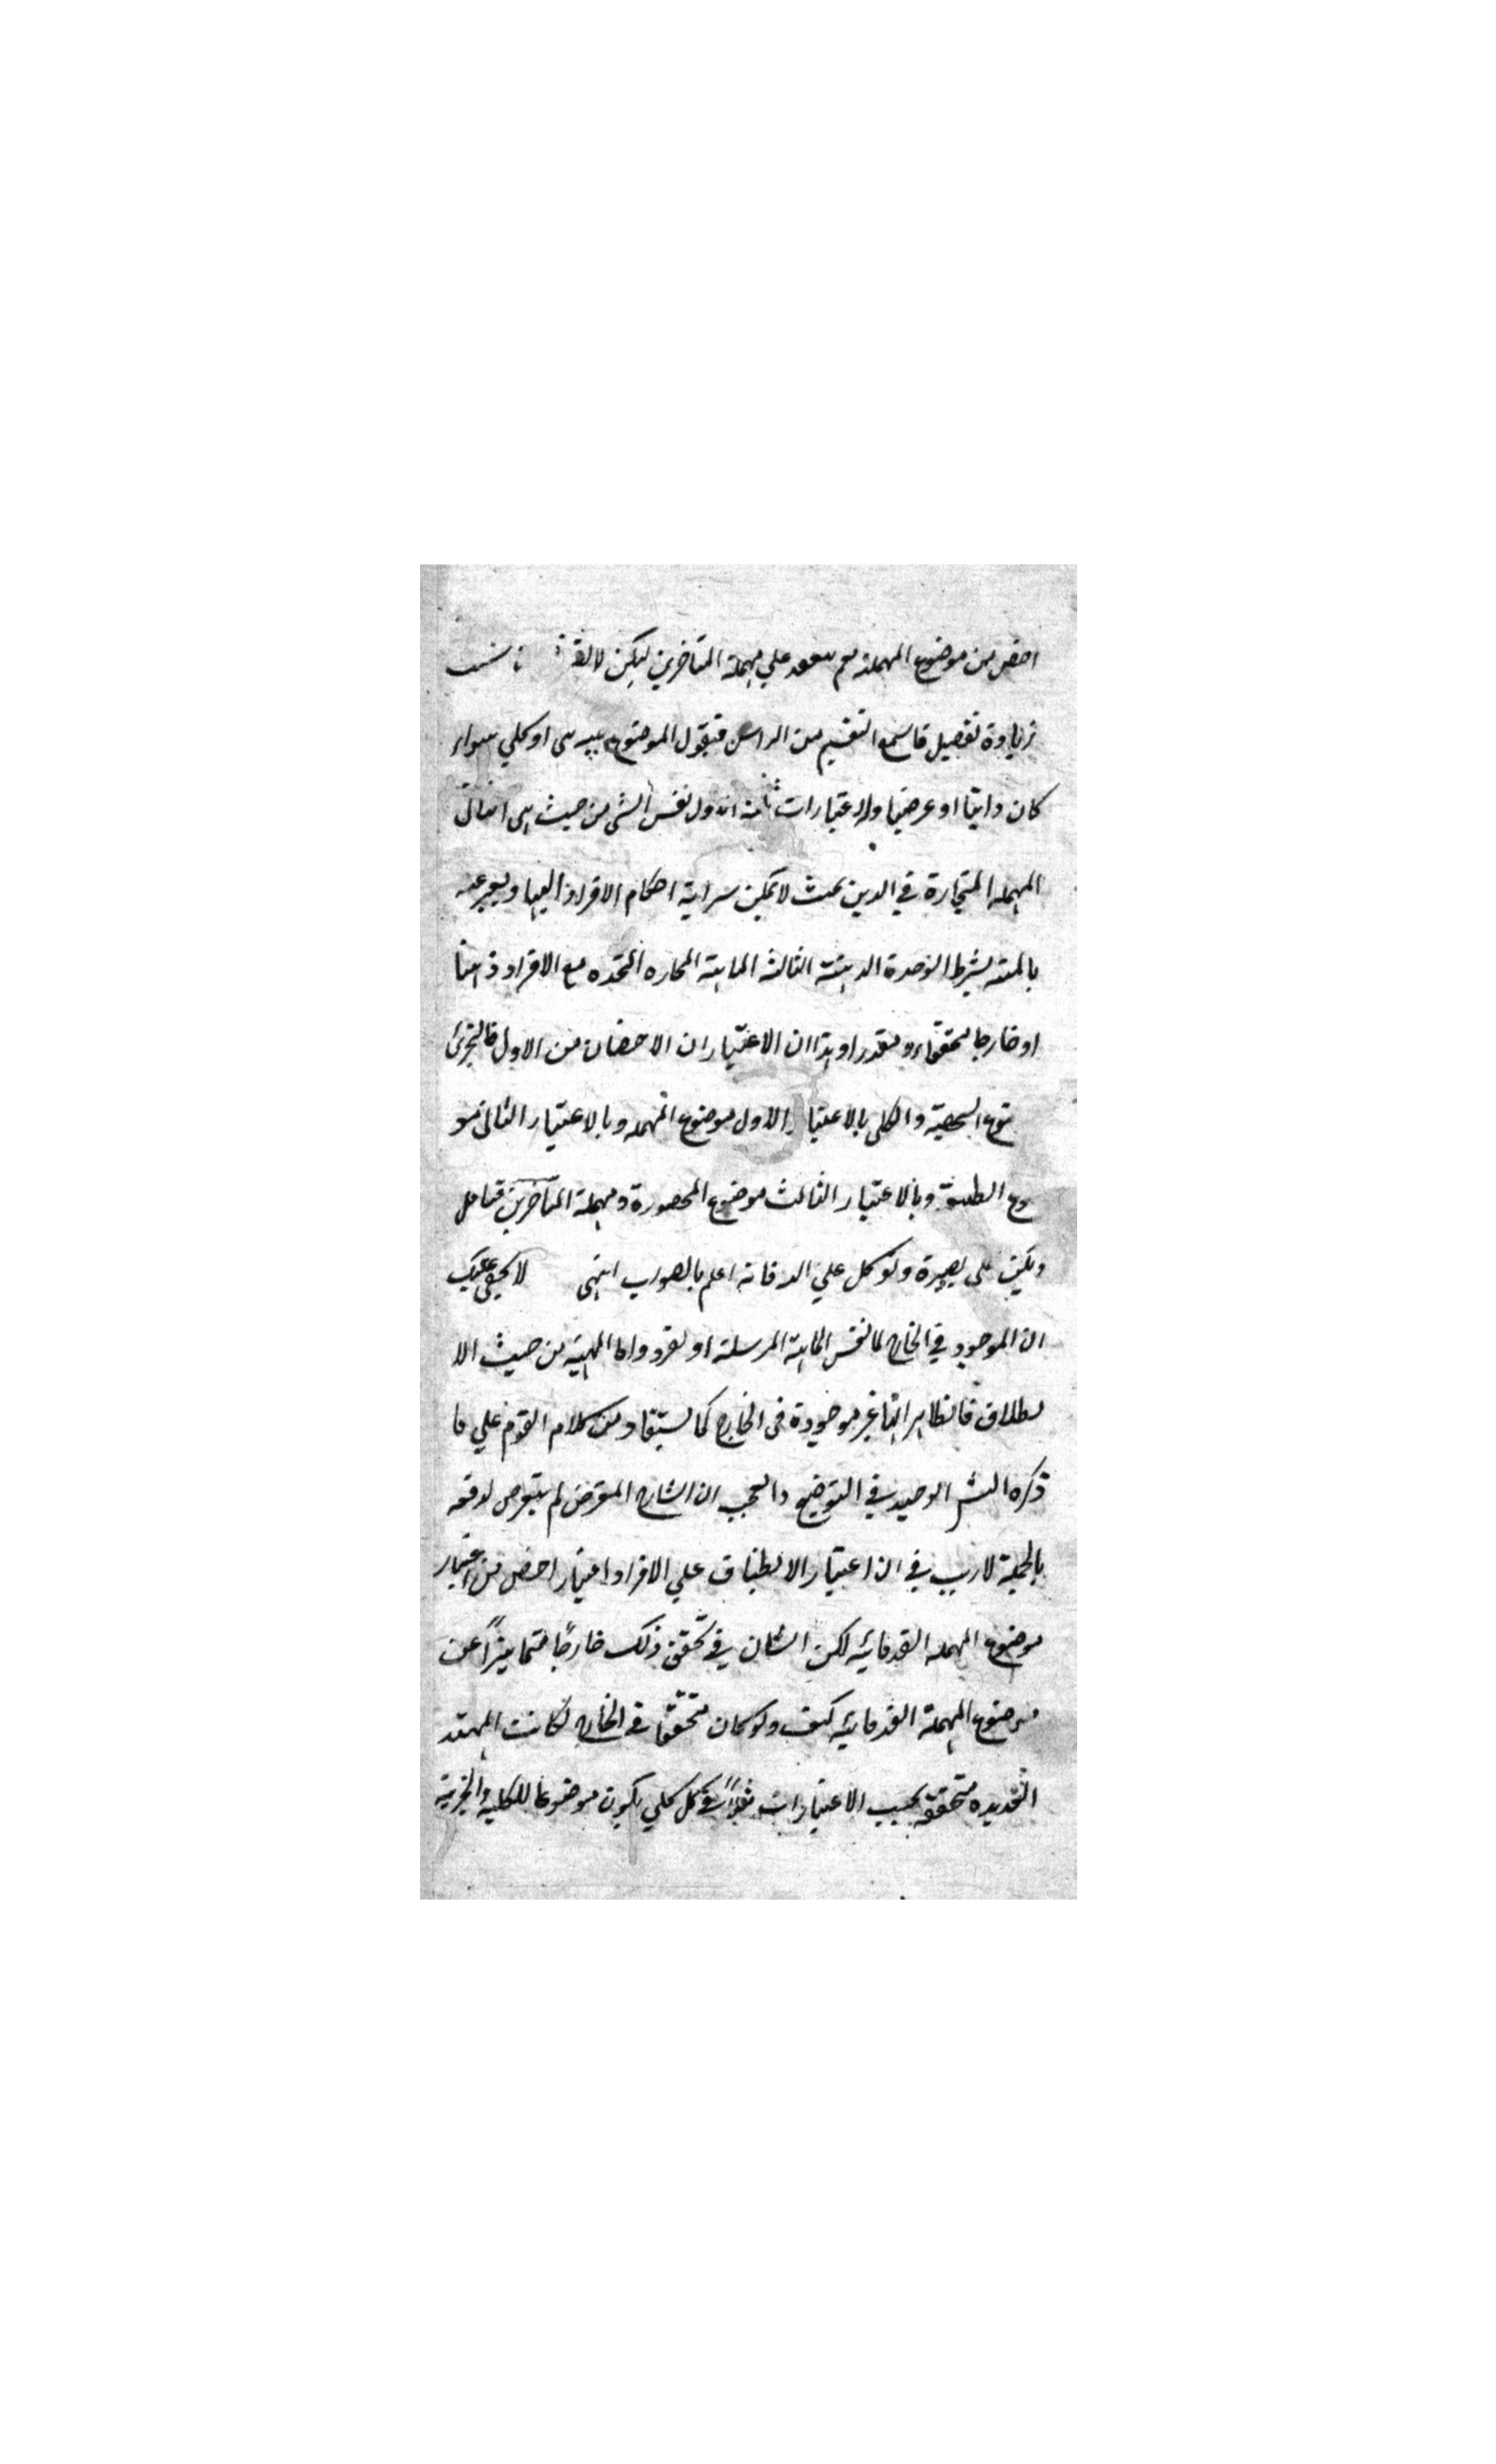 اخص من موضوع المهملة نعم يصدق علي مهملة المتاخرين ليكن
زيادة تفصيل فاسمع التقسيم من الراس فنقول الموضوع اما جزئى او كلي سواء
كان ذاتيا او عرضيا وله اعتبارات ثلثة الاول نفس الشى من حيث هى الثانى
المهملة فى الذهن بحيث لا يمكن سراية احكام الافراد اليها ويعبر عنه
بشرط الوحدة الذهنية الثالث الماهية المتحده مع الافراد ذهنا
او خارجا محققا او مقدرا وهذان الاعتباران الاخصان من الاول فالجزئى
موضوع الشخصية والكلى بالاعتبار الاول موضوع المهمله وبالاعتبار الثانى مو
ضوع الطبعية وبالاعتبار الثالث موضوع المحصورة ومهملة المتأخرين فتامل
وليكن على بصيرة وتوكل علي الله فانه اعلم بالصواب انتهى لا يخفى عليك
ان الموجود في الخارج اما نفس الماهية المرسلة او الفرد واما المهية من حيث الا
طلاق فالظاهر انها غير موجودة فى الخارج كما يستفاد من كلام القوم علي ما
ذكره الوحيد في التوضيح والعجب ان الشارح المعترض لم يتعرض لدفعه
بالجملة لا ريب في ان اعتبار الانطباق علي الافراد اعتبار اخص من اعتبار
موضوع المهمله القدمائيه لكن الشان في تحقق ذلك خارجًا متمايزًا عن
موضوع المهملة القدمائيه كيف ولو كان متحققا فى الخارج لكانت
متحققة بحسب الاعتبارات فى كل كلي يكون موضوعا للكلية والجزئية